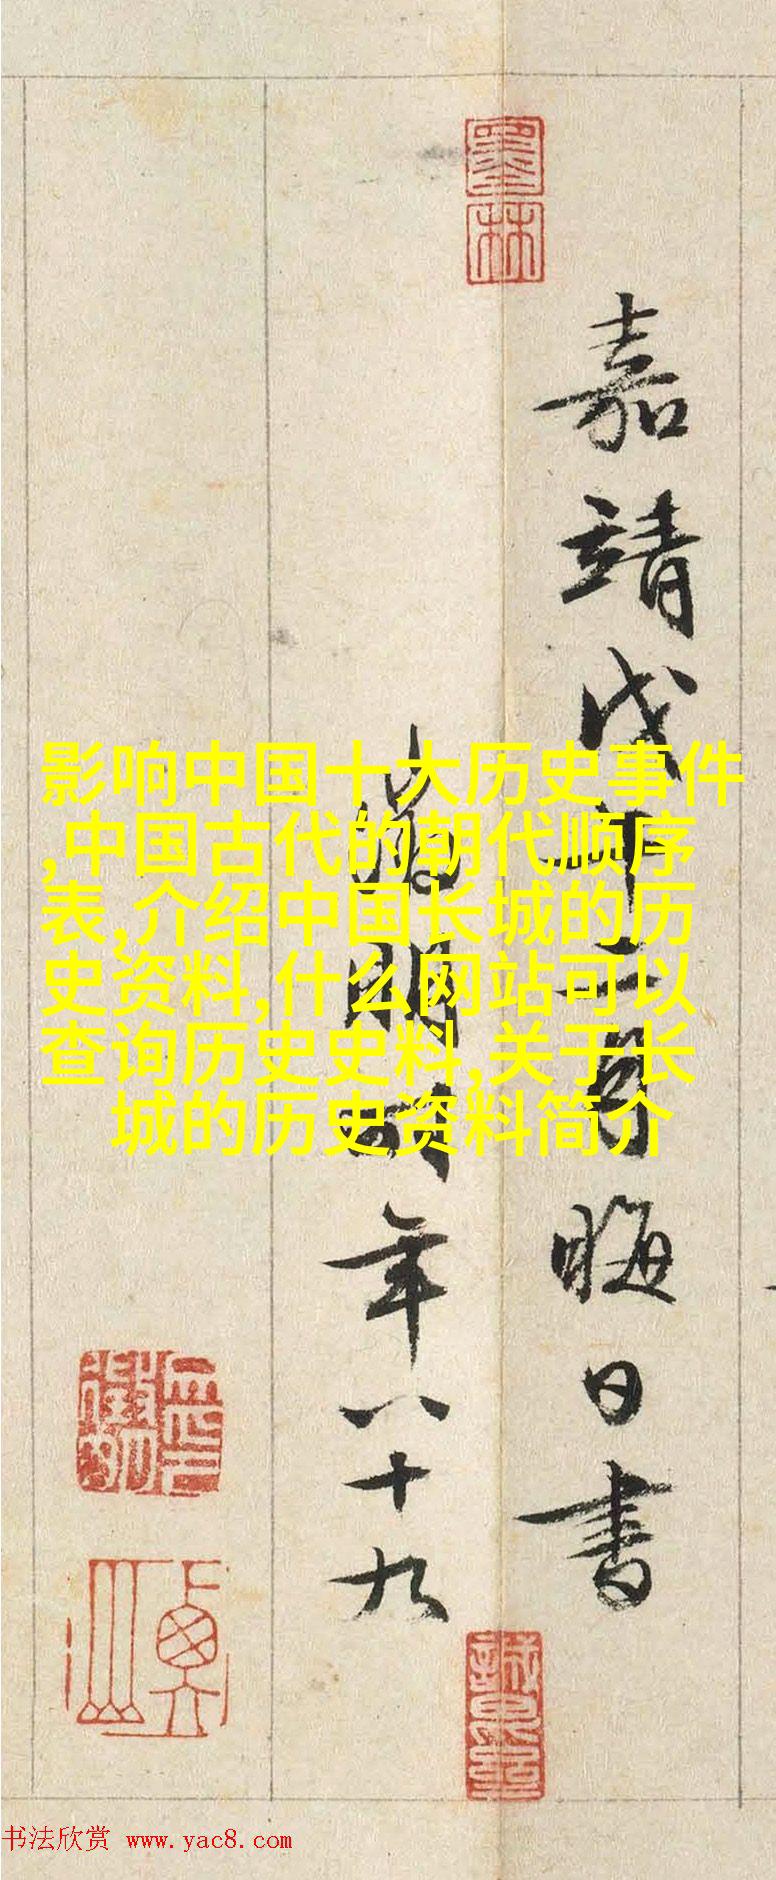 嘉靖戊午二月晦日書
徵明時年八十九
影响中国十大历史事件
,中国古代的朝代顺序
表,介绍中国长城的历
史资料,什么网站可以
查询历史史料,关于长
城的历史资料简介
墨林
书法欣赏 www.yac8.com